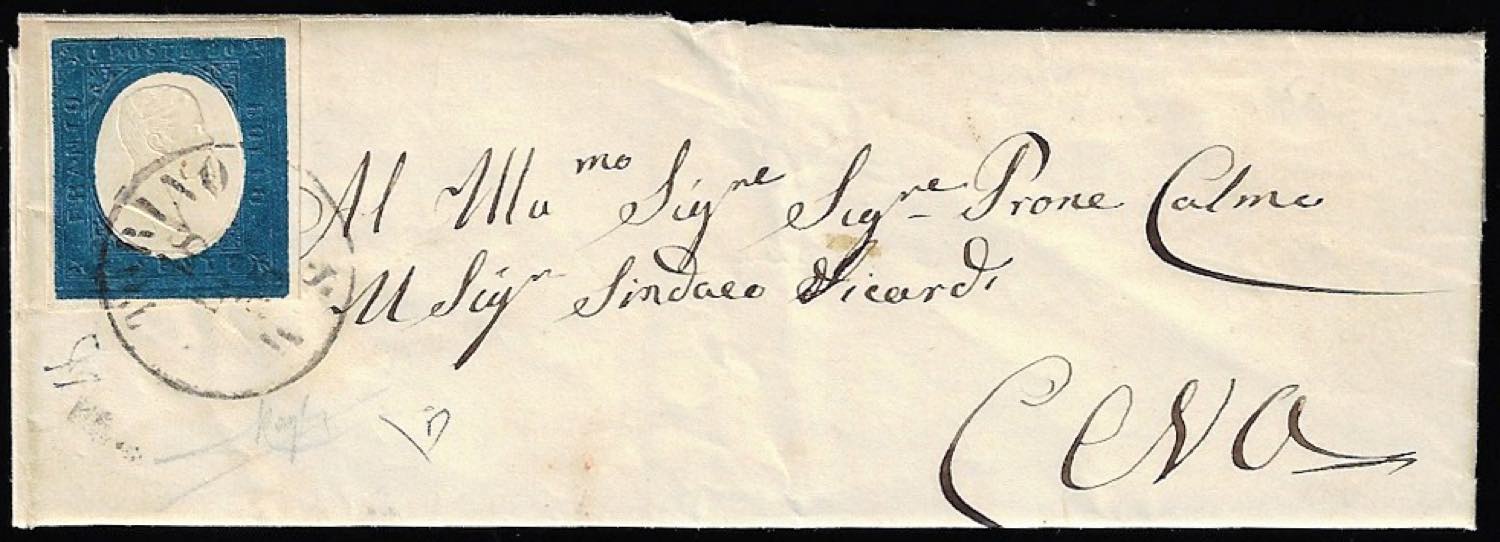 C POSTE 20
FRANCO
BOLLO
TORINO
Al Illu mo Sig.re Sig.re Prone Calmo
Il Sig.r Sindaco Sicardi
Ceva